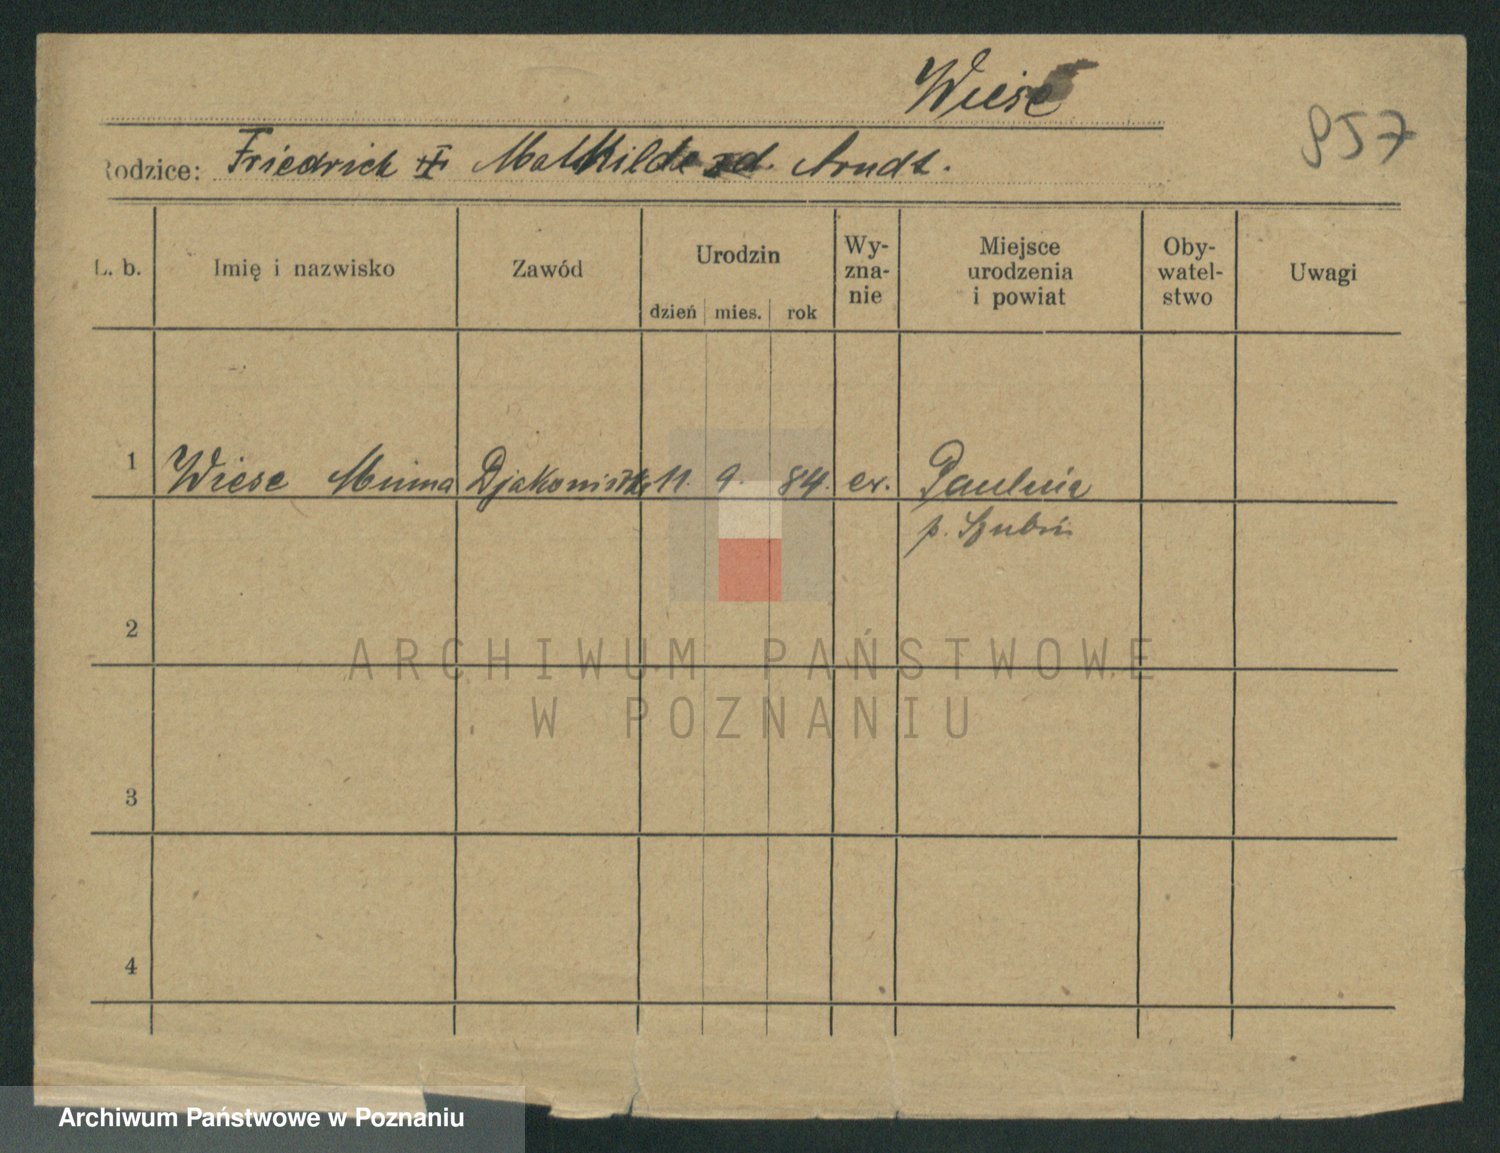 Wiese
957
Rodzice: Friedrich Mathilde zd. Arndt.
L. b. Imię i nazwisko Zawód Urodzin dzień mies. rok Wy-
zna-
nie Miejsce
urodzenia
i powiat Oby-
watel-
stwo Uwagi
1 Wiese Minna Djakoniska 11. 9. 84. ew. Paulina
p. Szubin
2
ARCHIWUM PAŃSTWOWE
W POZNANIU
3
4
Archiwum Państwowe w Poznaniu